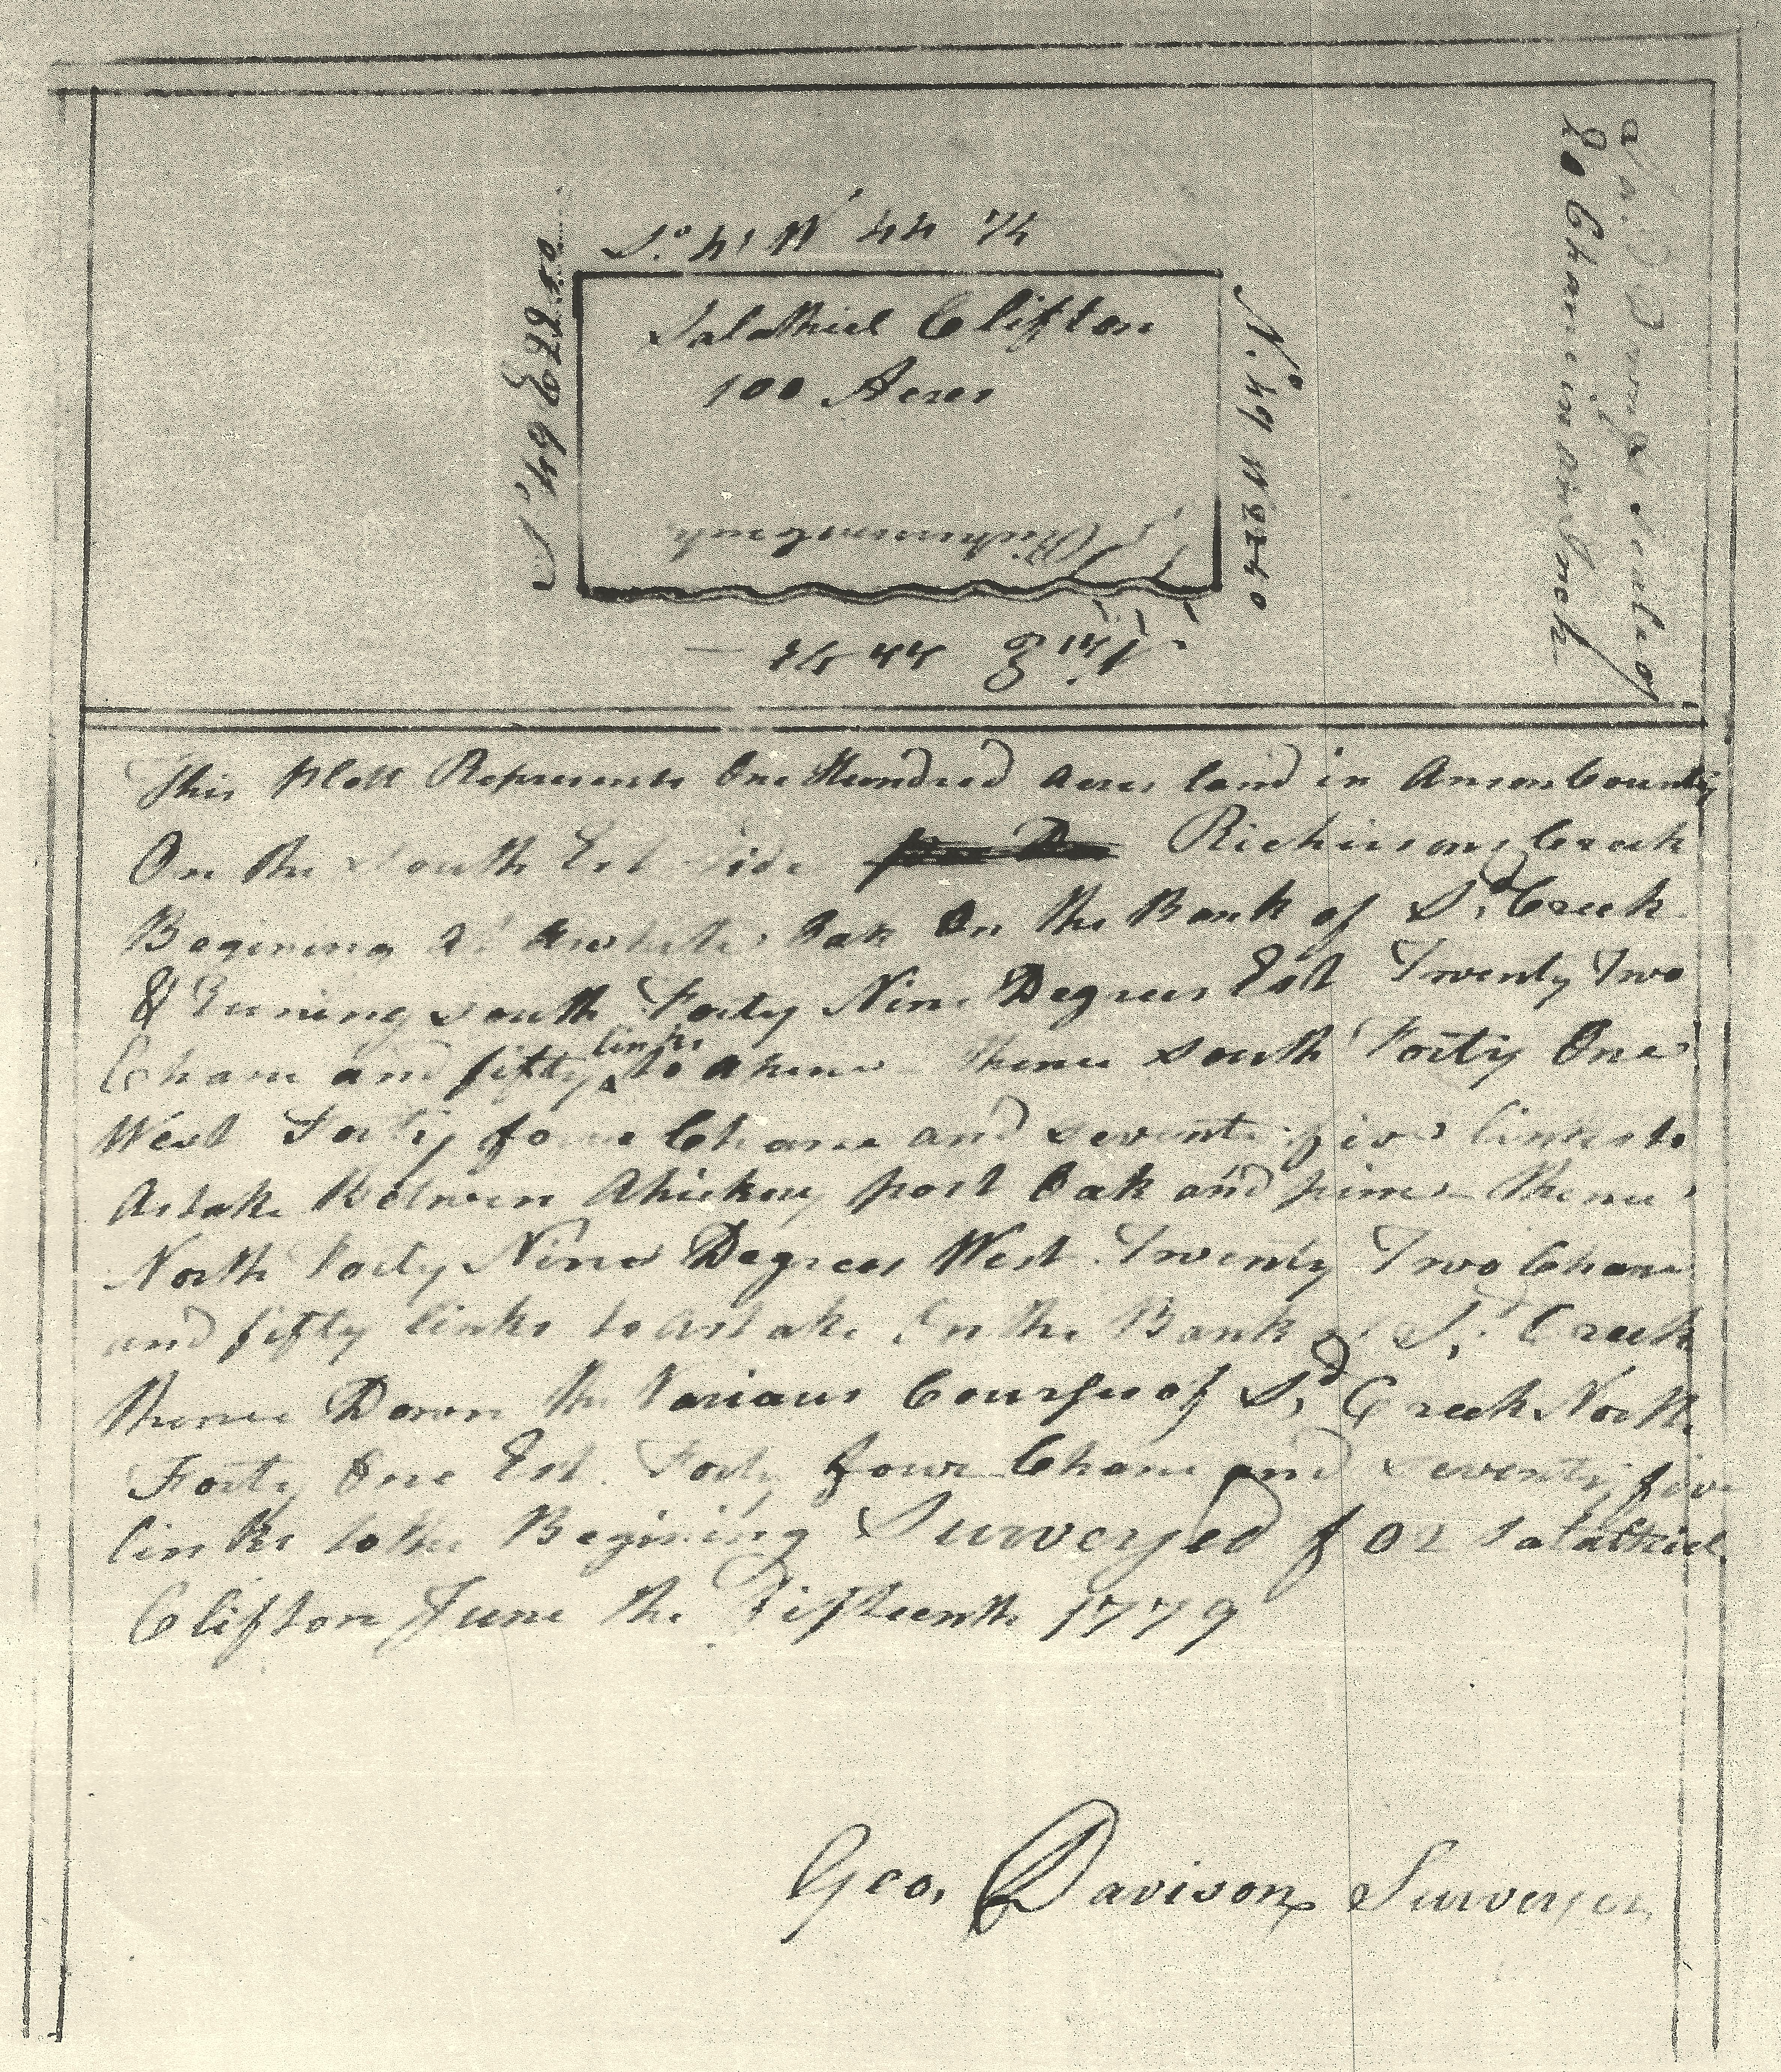 So 41 W 44 75
Salathiel Clifton
100 Acres
So 49 E 22 50
No 49 W 22 50
Richinson Creek
No 41 E 44 75
20 Chane in an Inch
This Plott Represents One Hundred acres land in Anson County
On the South Est Side Richinsons Creek
Begining at Awhite Oak On the Bank of Sd Creek
& Runing south Forty Nine Degrees Est Twenty Two
Chane and fifty links to Apine thence south Forty One
West Forty foure Chane and seventy five links to
Astake Between Ahickory post Oak and pine thence
North Forty Nine Degrees West Twenty Two Chane
and fifty links to Astake On the Bank of Sd Creek
thence Down the Various Courses of Sd Creek North
Forty One Est Forty foure Chane and seventy five
links to the Begining Surveyed for Salathiel
Clifton June the Fifteenth 1779
Geo. Davison Surveyor